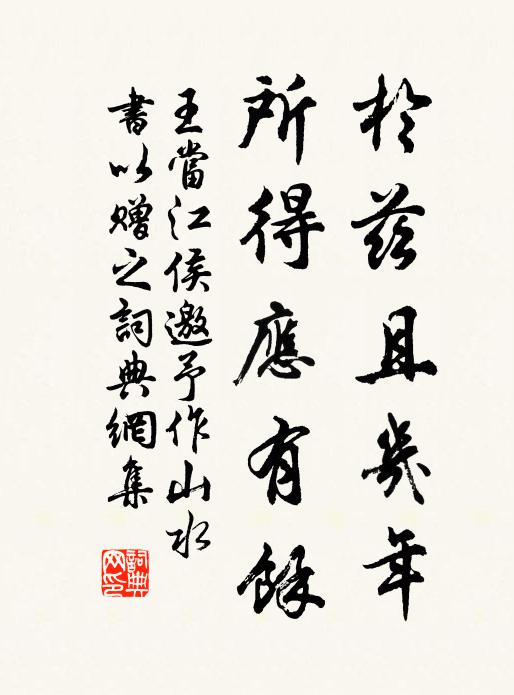 於茲且幾年
所得應有餘
王當江侯邀予作山水
書以贈之詞典網集
詞典網印